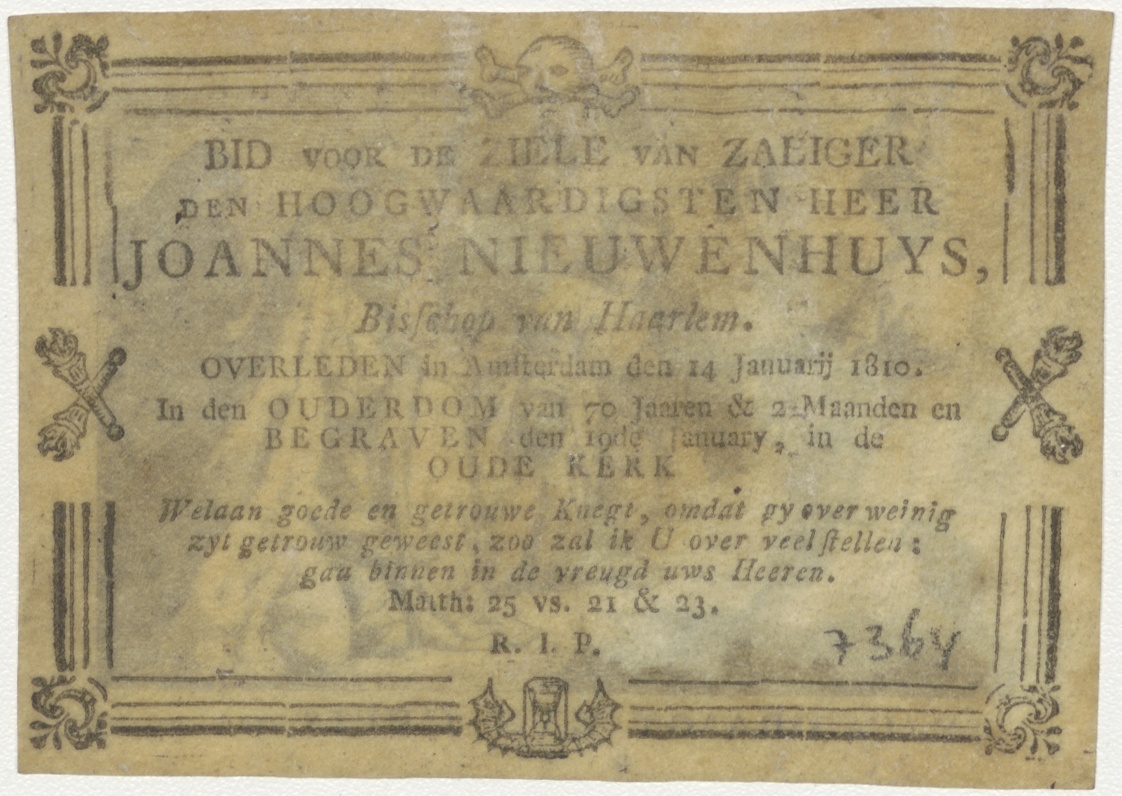 BID VOOR DE ZIELE VAN ZALIGER
DEN HOOGWAARDIGSTEN HEER
JOANNES NIEUWENHUYS,
Bisſchop van Haarlem.
OVERLEDEN in Amsterdam den 14 Januarij 1810.
In den OUDERDOM van 70 Jaaren & 2 Maanden en
BEGRAVEN den 19de January, in de
OUDE KERK
Welaan goede en getrouwe Knegt, omdat gy over weinig
zyt getrouw geweest, zoo zal ik U over veel ſtellen:
gaa binnen in de vreugd uws Heeren.
Matth: 25 vs. 21 & 23.
R. I. P.
7364